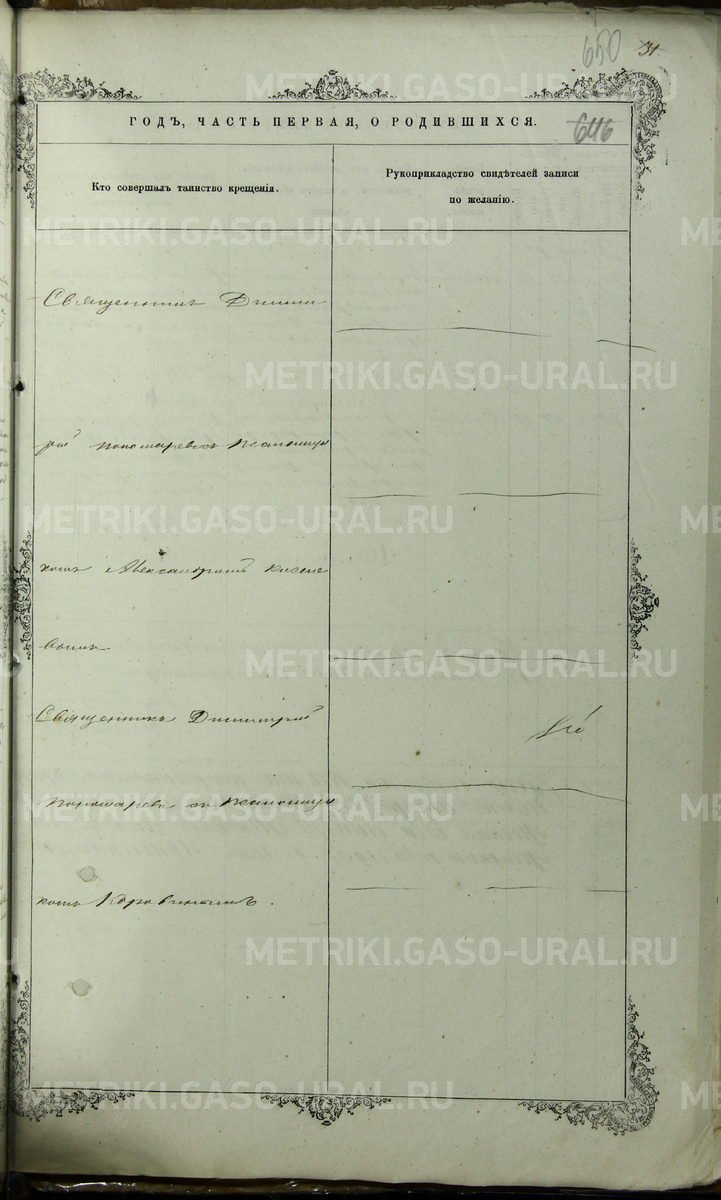 650 31
ГОДЪ, ЧАСТЬ ПЕРВАЯ, О РОДИВШИХСЯ.
646
Кто совершалъ таинство крещенія.
Рукоприкладство свидѣтелей записи
по желанію.
Священникъ Дими
трій Пономаревъ съ Псаломщи
комъ Александромъ Кисле
вымъ
Священникъ Димитрій
Пономаревъ съ Псаломщи
комъ Коровинымъ.
METRIKI.GASO-URAL.RU